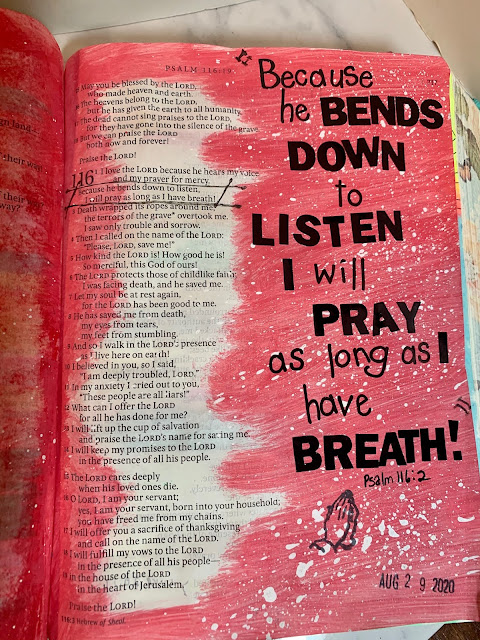 gn land—
their
PSALM 116:19
May you be blessed by the LORD,
who made heaven and earth.
The heavens belong to the LORD,
but he has given the earth to all humanity.
The dead cannot sing praises to the LORD,
for they have gone into the silence of the grave.
But we can praise the LORD
both now and forever!
Praise the LORD!
116 1 I love the LORD because he hears my voice
and my prayer for mercy.
2 Because he bends down to listen,
I will pray as long as I have breath!
3 Death wrapped its ropes around me;
the terrors of the grave* overtook me.
I saw only trouble and sorrow.
4 Then I called on the name of the LORD:
"Please, LORD, save me!"
5 How kind the LORD is! How good he is!
So merciful, this God of ours!
6 The LORD protects those of childlike faith;
I was facing death, and he saved me.
7 Let my soul be at rest again,
for the LORD has been good to me.
8 He has saved me from death,
my eyes from tears,
my feet from stumbling.
9 And so I walk in the LORD's presence
as I live here on earth!
10 I believed in you, so I said,
"I am deeply troubled, LORD."
11 In my anxiety I cried out to you,
"These people are all liars!"
12 What can I offer the LORD
for all he has done for me?
13 I will lift up the cup of salvation
and praise the LORD's name for saving me.
14 I will keep my promises to the LORD
in the presence of all his people.
15 The LORD cares deeply
when his loved ones die.
16 O LORD, I am your servant;
yes, I am your servant, born into your household;
you have freed me from my chains.
17 I will offer you a sacrifice of thanksgiving
and call on the name of the LORD.
18 I will fulfill my vows to the LORD
in the presence of all his people—
19 in the house of the LORD
in the heart of Jerusalem.
Praise the LORD!
116:3 Hebrew of Sheol.
Because
he BENDS
DOWN
to
LISTEN
I will
PRAY
as long as I
have
BREATH!
Psalm 116:2
AUG 29 2020